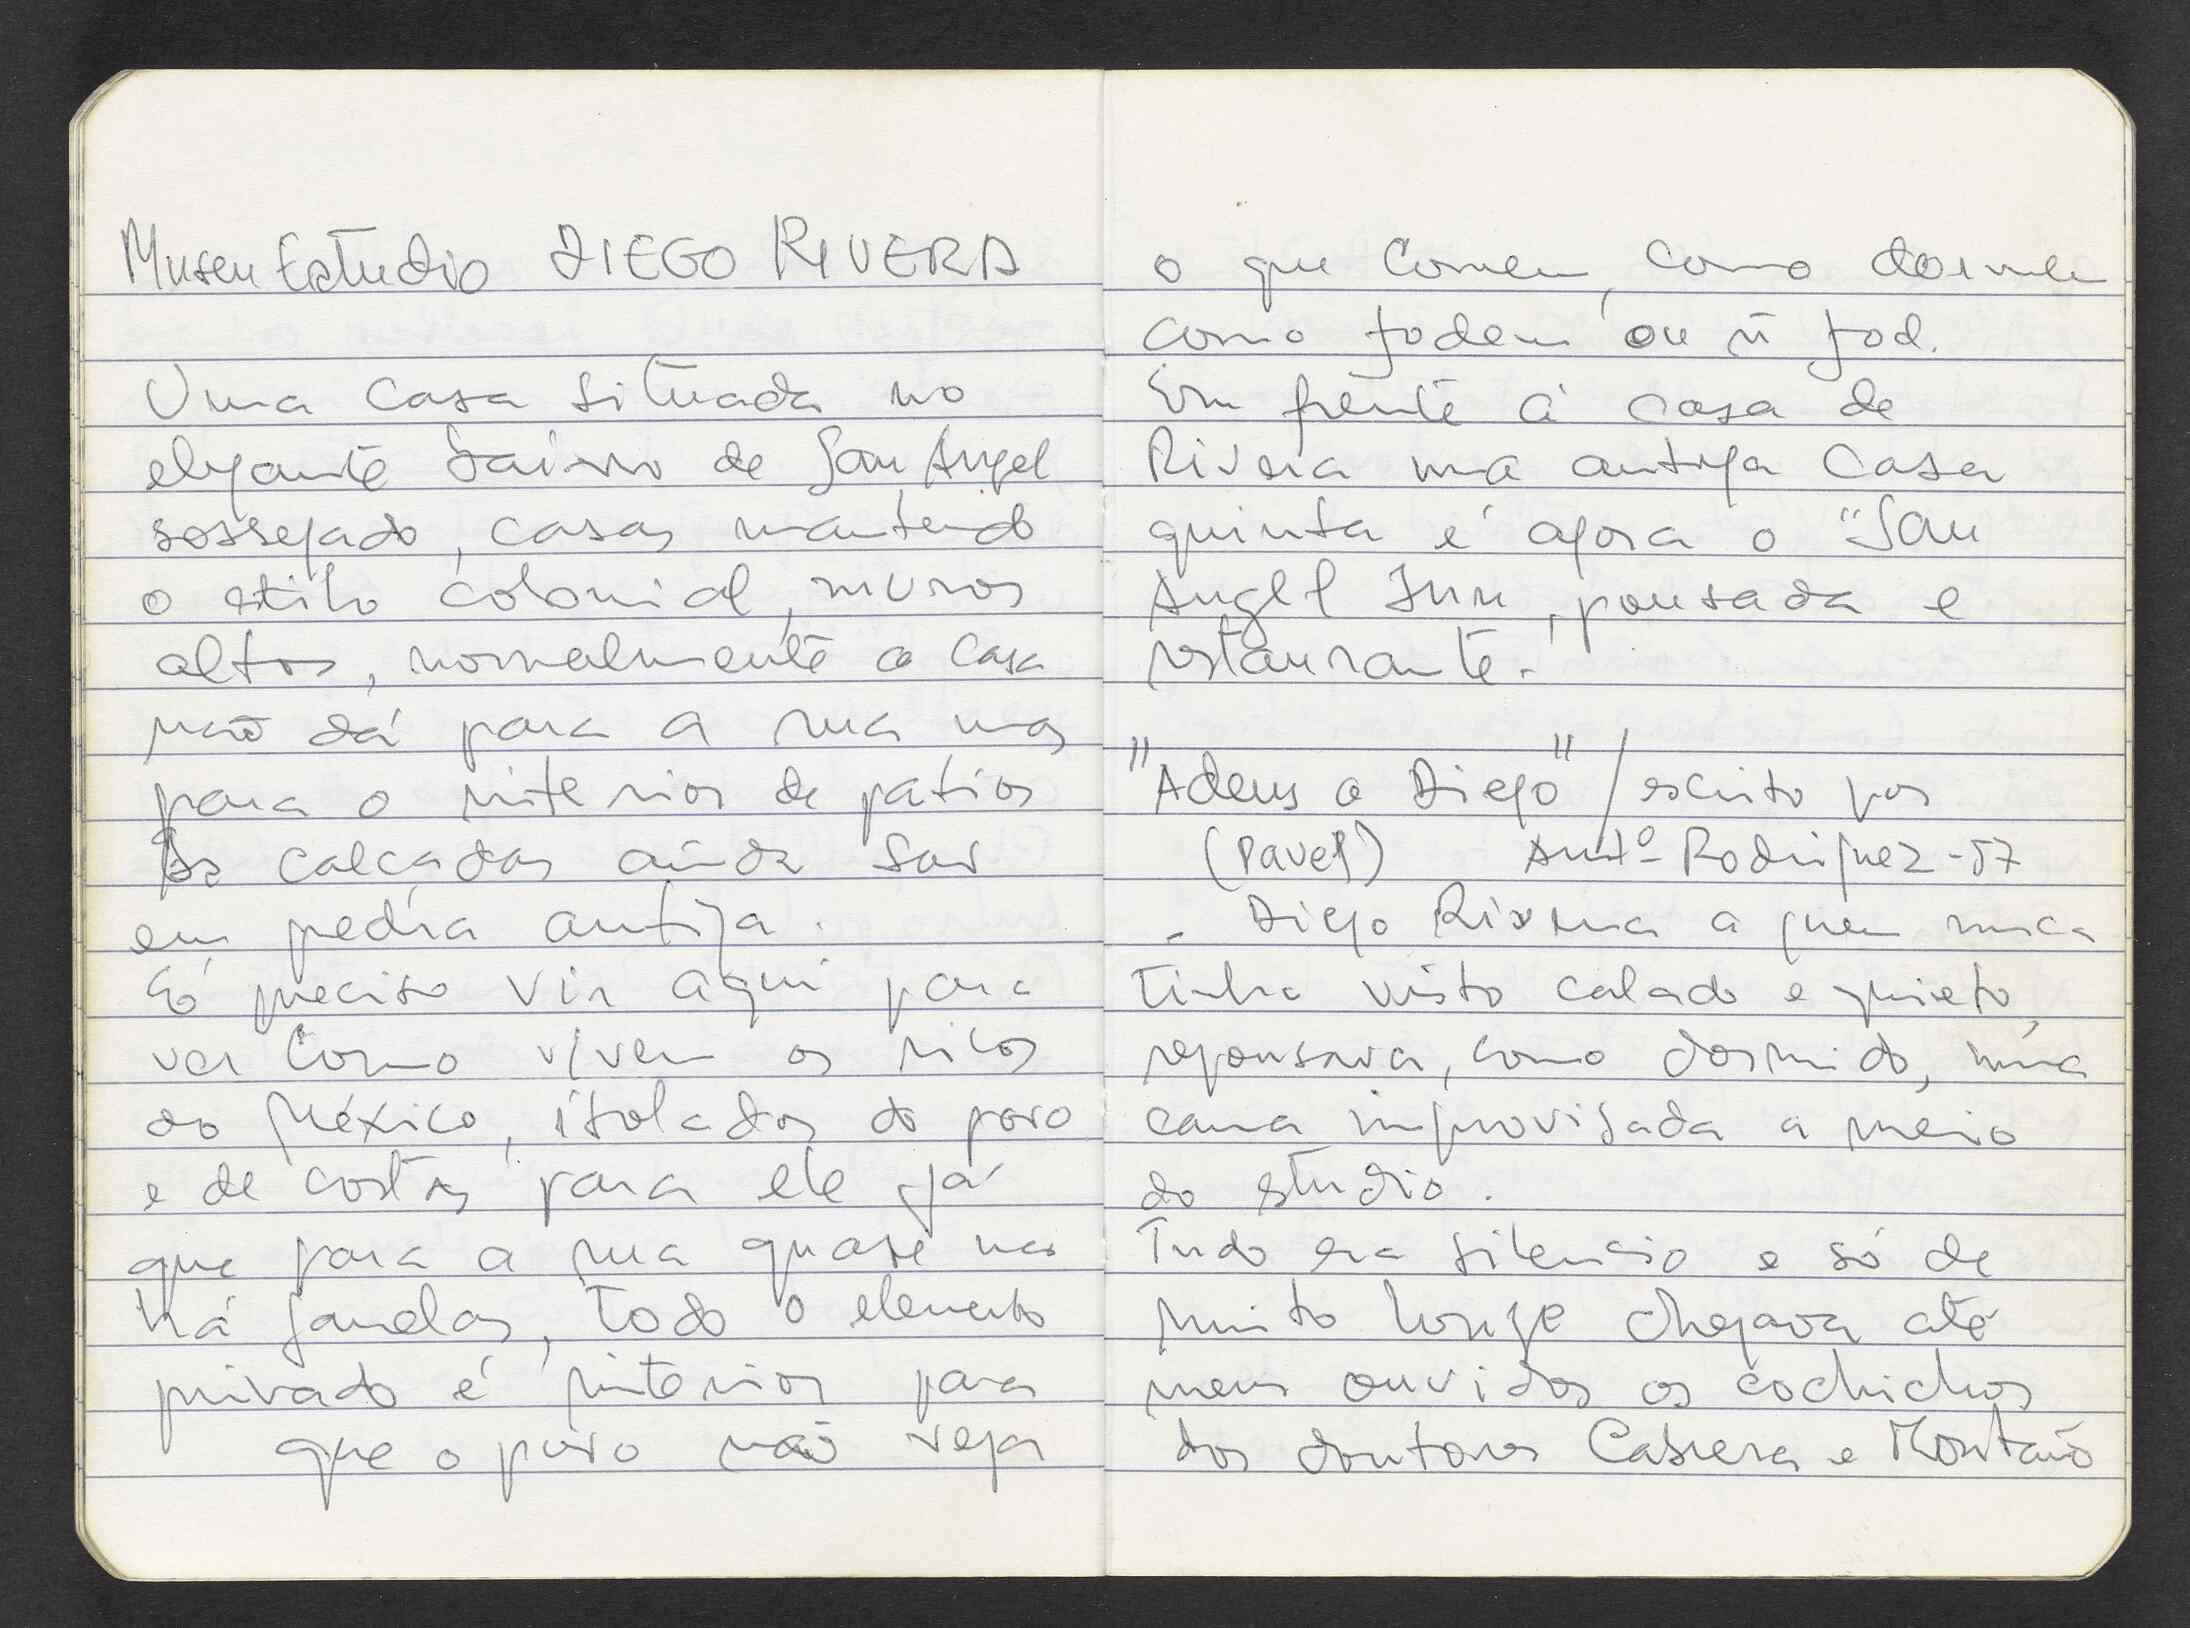 Museu Estudio DIEGO RIVERA
Uma casa situada no
elegante bairro de San Angel
sossegado, casas mantendo
o estilo colonial, muros
altos, normalmente a casa
não dá para a rua mas
para o interior de patios
As calçadas ainda são
em pedra antiga.
É preciso vir aqui para
ver como vivem os ricos
do México, isolados do povo
e de costas para ele já
que para a rua quase não
há janelas, todo o elemento
privado é interior para
que o povo não veja
o que comem, como dormem
como fodem ou ñ fod.
Em frente à casa de
Rivera uma antiga casa
quinta é agora o "San
Angel Inn, pousada e
restaurante.
"Adeus a Diego" / escrito por
(Pavel) Antº Rodriguez - 57
- Diego Rivera a quem nunca
tinha visto calado e quieto,
repousava, como dormido, numa
cama improvisada a meio
do estudio.
Tudo era silencio e só de
muito longe chegava até
meus ouvidos os cochichos
dos doutores Cabrera e Montaño